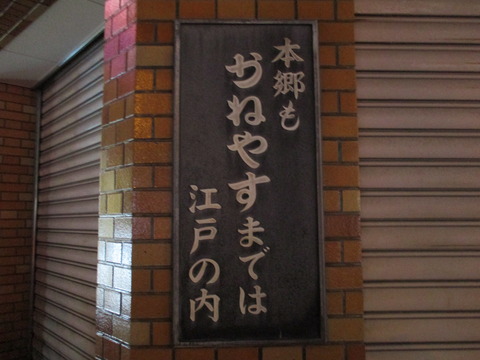 本郷も
かねやすまでは
江戸の内